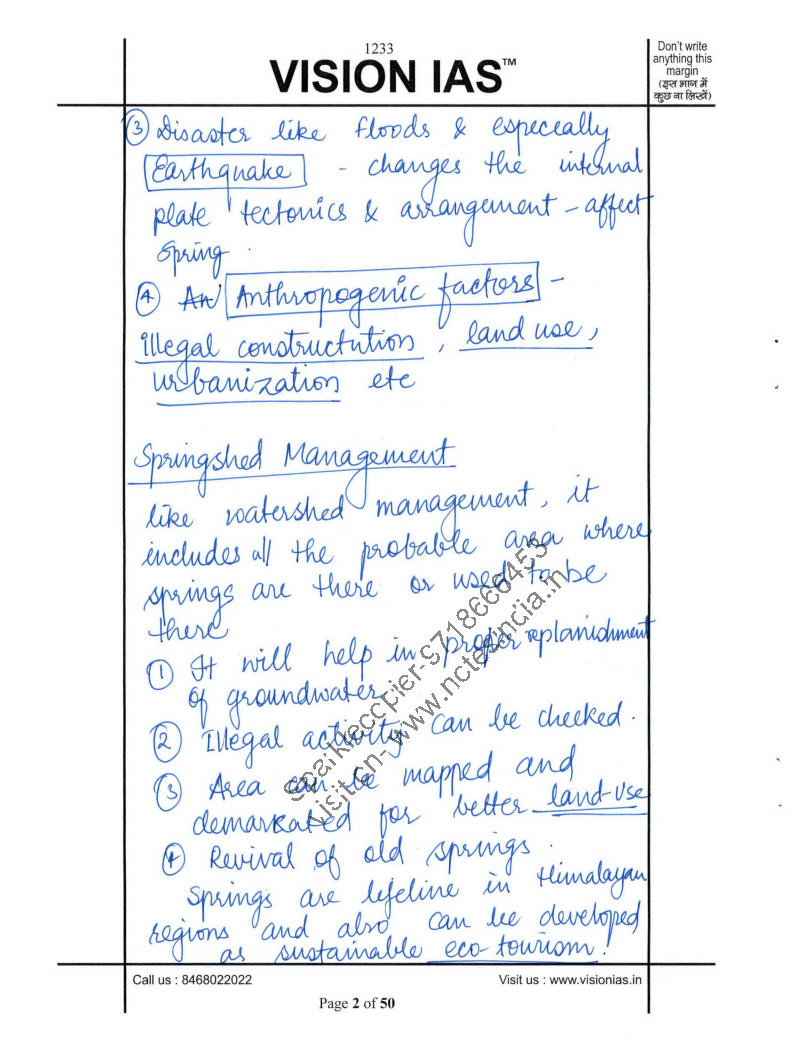 1233
VISION IAS™
Don't write
anything this
margin
(इस भाग में
कुछ ना लिखें)
③ Disaster like floods & especeally
Earthquake - changes the internal
plate tectonics & arrangement - affect
spring.
④ An Anthropogenic factors -
illegal constructution, land use,
urbanization etc
Springshed Management
like watershed management, it
includes all the probable area where
springs are there or used to be
there
① It will help in proper replanishment
of groundwater.
② Illegal activity can be checked.
③ Area can be mapped and
demarkated for better land-use
④ Revival of old springs.
Springs are lifeline in Himalayan
regions and also can be developed
as sustainable eco-tourism!
visit on- www.notesindia.in
Call us : 8468022022
Visit us : www.visionias.in
Page 2 of 50